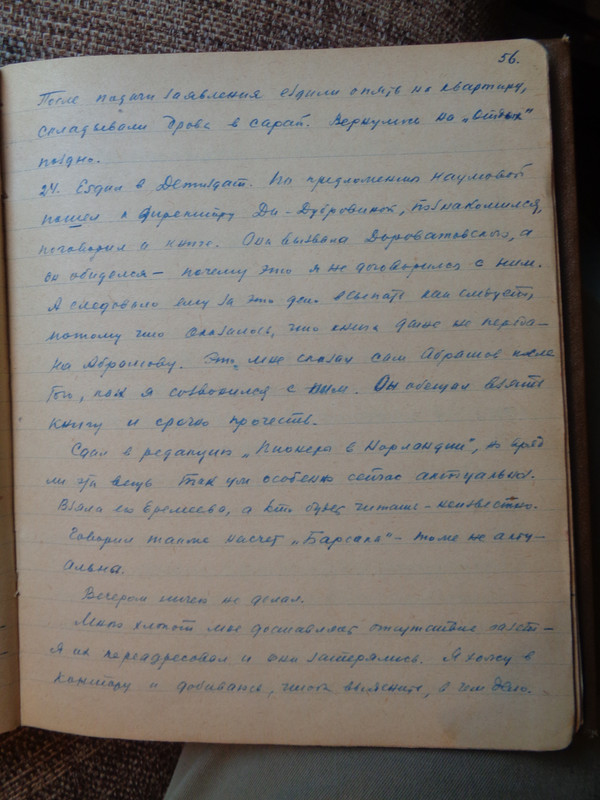 56.
После подачи заявления ездили опять на квартиру,
складывали дрова в сарай. Вернулись на „
поздно.
24. Ездил в Детиздат. По предложению Наумовой
пошел к директору Ди-Дубровиной, познакомился,
поговорил о книге. Она вызвала Дороватовского, а
он обиделся — почему это я не договорился с ним.
А следовало ему за это дело всыпать как следует,
потому что оказалось, что книга даже не переда-
на Абрамову. Это мне сказал сам Абрамов после
того, как я созвонился с ним. Он обещал взять
книгу и срочно прочесть.
Сдал в редакцию „Пионеры в Норландии", но вряд
ли эта вещь так уж особенно сейчас актуальна.
Взяла ее Еремеева, а кто будет читать - неизвестно.
Говорил также насчет „Барсака" - тоже не акту-
альны.
Вечером ничего не делал.
Много хлопот мне доставляет отсутствие газет -
Я их переадресовал и они затерялись. Я хожу в
контору и добиваюсь, чтобы выяснить, в чем дело.